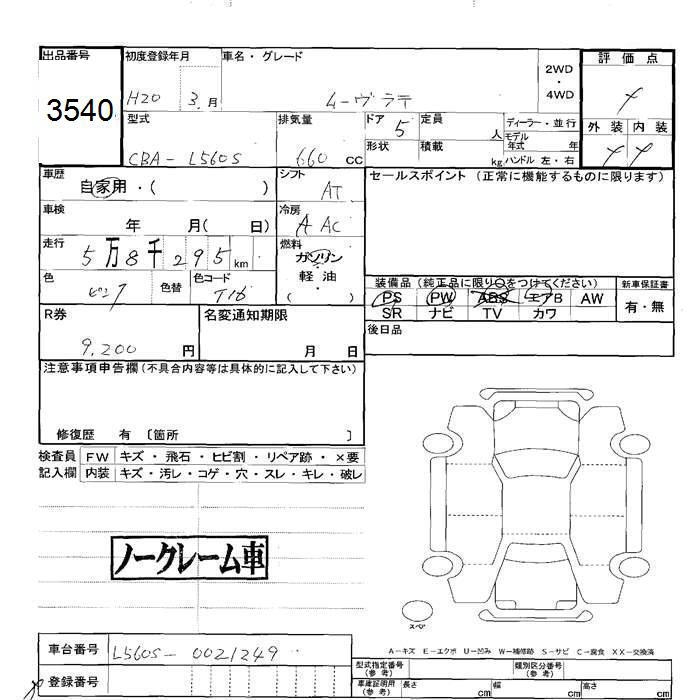 出品番号 初度登録年月 車名・グレード 評価点
3540 H20 3.月 ムーヴラテ 2WD・4WD
型式 排気量 ドア 定員 ディーラー・並行 外装 内装
CBA-L560S 660 CC 5 人 モデル年式 年
形状 積載 kg ハンドル 左・右
車歴 シフト セールスポイント (正常に機能するものに限ります)
自家用・( ) AT
車検 冷房
年 月( 日) A AC
走行 燃料
5万8千295km ガソリン
軽油
・
( )
色 色替 色コード
ピンク T16
装備品 (純正品に限り○をつけてください) 新車保証書
PS PW ABS エアB AW 有・無
SR ナビ TV カワ
R券 名変通知期限 後日品
9,200 円 月 日
注意事項申告欄 (不具合内容等は具体的に記入して下さい)
修復歴 有 〔箇所 〕
検査員 FW キズ・飛石・ヒビ割・リペア跡・×要
記入欄 内装 キズ・汚レ・コゲ・穴・スレ・キレ・破レ
ノークレーム車
スペア
A-キズ E-エクボ U-凹み W-補修跡 S-サビ C-腐食 XX-交換済
車台番号 L560S-0021249
登録番号
型式指定番号 (参考) 類別区分番号 (参考)
車庫証明用 (参考) 長さ cm 幅 cm 高さ cm